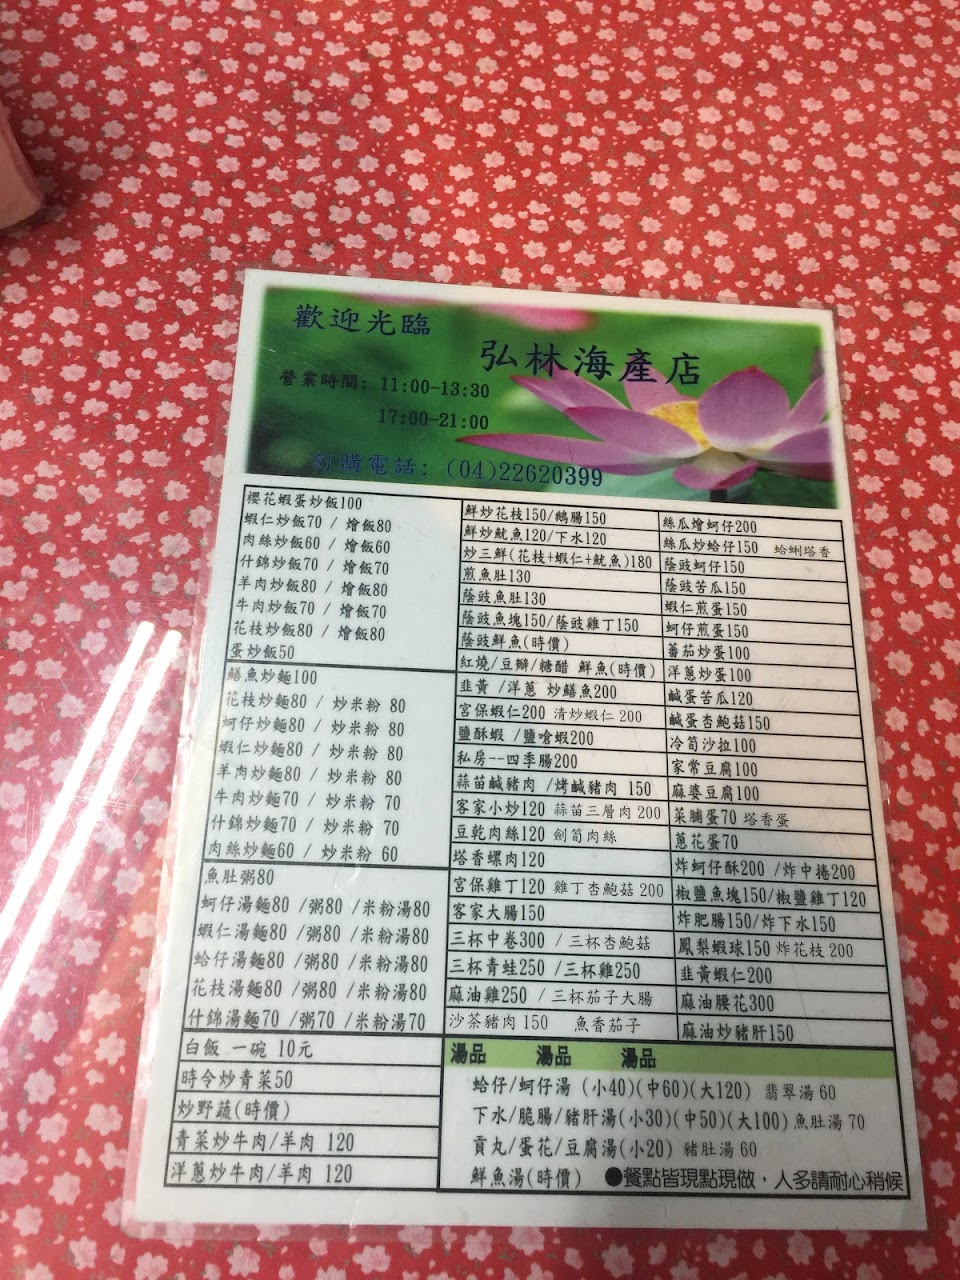 歡迎光臨
弘林海產店
營業時間: 11:00-13:30
17:00-21:00
訂購電話: (04)22620399
櫻花蝦蛋炒飯100
蝦仁炒飯70 / 燴飯80
肉絲炒飯60 / 燴飯60
什錦炒飯70 / 燴飯70
羊肉炒飯80 / 燴飯80
牛肉炒飯70 / 燴飯70
花枝炒飯80 / 燴飯80
蛋炒飯50
鱔魚炒麵100
花枝炒麵80 / 炒米粉 80
蚵仔炒麵80 / 炒米粉 80
蝦仁炒麵80 / 炒米粉 80
羊肉炒麵80 / 炒米粉 80
牛肉炒麵70 / 炒米粉 70
什錦炒麵70 / 炒米粉 70
肉絲炒麵60 / 炒米粉 60
魚肚粥80
蚵仔湯麵80 /粥80 /米粉湯80
蝦仁湯麵80 /粥80 /米粉湯80
蛤仔湯麵80 /粥80 /米粉湯80
花枝湯麵80 /粥80 /米粉湯80
什錦湯麵70 /粥70 /米粉湯70
白飯 一碗 10元
時令炒青菜50
炒野蔬(時價)
青菜炒牛肉/羊肉 120
洋蔥炒牛肉/羊肉 120
鮮炒花枝150/鵝腸150
鮮炒魷魚120/下水120
炒三鮮(花枝+蝦仁+魷魚)180
煎魚肚130
蔭豉魚肚130
蔭豉魚塊150/蔭豉雞丁150
蔭豉鮮魚(時價)
紅燒/豆瓣/糖醋 鮮魚(時價)
韭黃 /洋蔥 炒鱔魚200
宮保蝦仁200 清炒蝦仁 200
鹽酥蝦 /鹽嗆蝦200
私房--四季腸200
蒜苗鹹豬肉 /烤鹹豬肉 150
客家小炒120 蒜苗三層肉 200
豆乾肉絲120 劍筍肉絲
塔香螺肉120
宮保雞丁120 雞丁杏鮑菇 200
客家大腸150
三杯中卷300 / 三杯杏鮑菇
三杯青蛙250 /三杯雞250
麻油雞250 / 三杯茄子大腸
沙茶豬肉 150 魚香茄子
絲瓜燴蚵仔200
絲瓜炒蛤仔150 蛤蜊塔香
蔭豉蚵仔150
蔭豉苦瓜150
蝦仁煎蛋150
蚵仔煎蛋150
蕃茄炒蛋100
洋蔥炒蛋100
鹹蛋苦瓜120
鹹蛋杏鮑菇150
冷筍沙拉100
家常豆腐100
麻婆豆腐100
菜脯蛋70 塔香蛋
蔥花蛋70
炸蚵仔酥200 /炸中捲200
椒鹽魚塊150/椒鹽雞丁120
炸肥腸150/炸下水150
鳳梨蝦球150 炸花枝 200
韭黃蝦仁200
麻油腰花300
麻油炒豬肝150
湯品 湯品 湯品
蛤仔/蚵仔湯 (小40)(中60)(大120) 翡翠湯 60
下水/脆腸/豬肝湯(小30)(中50)(大100) 魚肚湯 70
貢丸/蛋花/豆腐湯(小20) 豬肚湯 60
鮮魚湯(時價) ●餐點皆現點現做，人多請耐心稍候